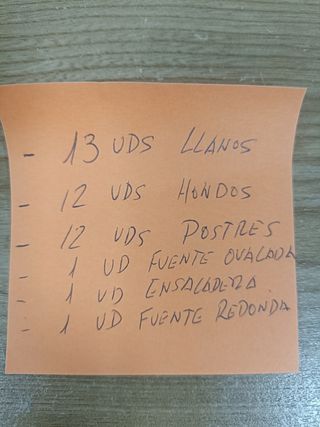 - 13 UDS LLANOS
- 12 UDS HONDOS
- 12 UDS POSTRES
- 1 UD FUENTE OVALADA
- 1 UD ENSALADERA
- 1 UD FUENTE REDONDA